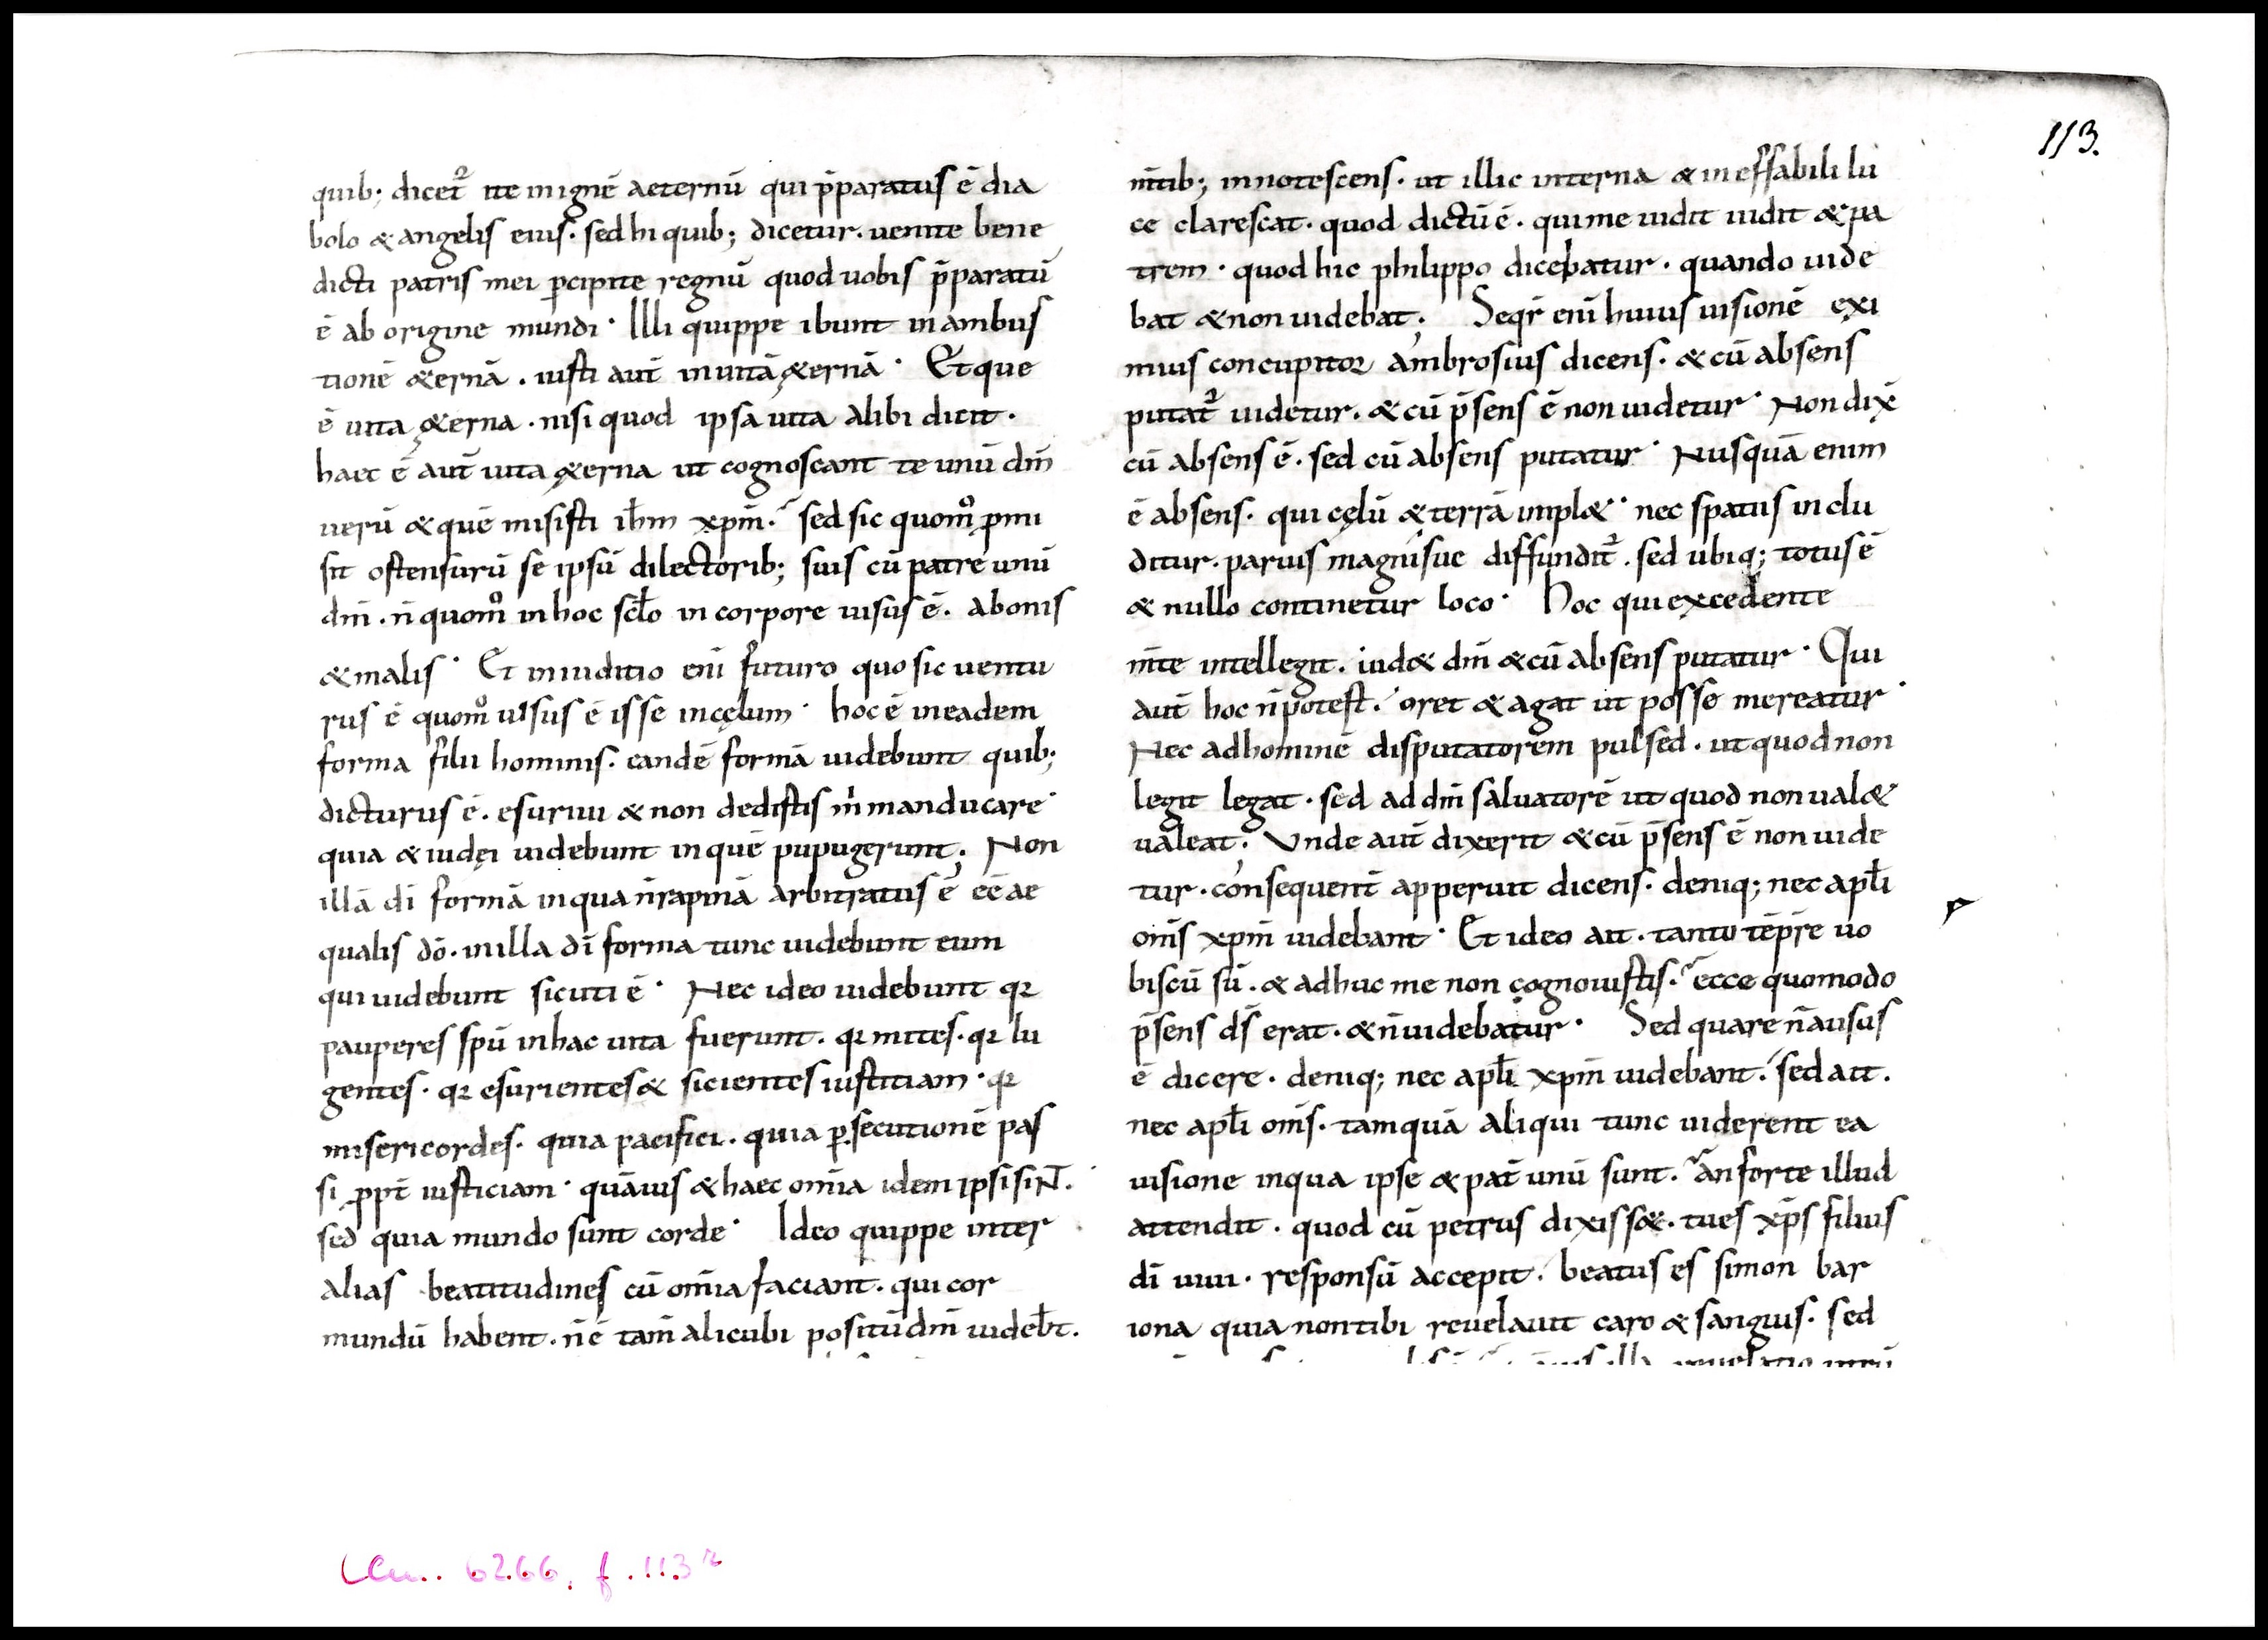 113.
quib; dicet᷑ ite inignē aeternū qui p̄paratus ē dia
bolo & angelis eius. sed hi quib; dicetur. uenite bene
dicti patris mei ꝑcipite regnū quod uobis p̄paratū
ē ab origine mundi. Illi quippe ibunt in ambus
tionē &ernā. iusti aut̄ in uitā &ernā. Et que
ē uita &erna. nisi quod ipsa uita alibi dicit.
haec ē aut̄ uita &erna ut cognoscant te unū dm̄
uerū & quē misisti ih̄m xpm̄. sed sic quom̊ ꝓmi
sit ostensurū se ipsū dilectorib; suis cū patre unū
dm̄. n̄ quom̊ in hoc sc̄lo in corpore uisus ē. abonis
& malis. Et in iuditio eni̅ futuro quo sic uentu
rus ē quom̊ uisus ē isse in cęlum. hoc ē in eadem
forma filii hominis. eandē formā uidebunt quib;
dicturus ē. esuriui & non dedistis m̄ manducare.
quia & iudęi uidebunt in quē pupugerunt; Non
illā dī formā in qua n̄ rapinā arbitratus ē eē ae
qualis dō. in illa dī forma tunc uidebunt eum
qui uidebunt sicuti ē. Nec ideo uidebunt qꝛ
pauperes spū in hac uita fuerunt. qꝛ mites. qꝛ lu
gentes. qꝛ esurientes & sicientes iustitiam. qꝛ
misericordes. quia pacifici. quia ꝑsecutionē pas
si ꝓpt̄ iusticiam. quāuis & haec om̄ia idem ipsi siN̄.
sed quia mundo sunt corde. Ideo quippe inter
alias beatitudines cū om̄ia faciant. qui cor
mundū habent. n̄ ē tam̄ alicubi positū dm̄ uideb̄t.
m̄tib; innotescens. ut illic interna & ineffabili lu
ce clarescat. quod dictū ē. qui me uidit uidit & pa
trem. quod hic philippo dicebatur. quando uide
bat & non uidebat; Seqr̄ eni̅ huius uisionē exi
mius concupitoꝛ ambrosius dicens. & cū absens
putat᷑ uidetur. & cū p̄sens ē non uidetur. Non dix̄
cū absens ē. sed cū absens putatur. Nusquā enim
ē absens. qui cęlū & terrā impl&. nec spatiis inclu
ditur. paruis magnisue diffundit᷑. sed ubiq; totus ē
& nullo continetur loco. Hoc qui excedente
m̄te intellegit. iud& dm̄ & cū absens putatur. Qui
aut̄ hoc n̄ potest. oret & agat ut posse mereatur.
Nec ad hominē disputatorem pulsed. ut quod non
legit legat. sed ad dm̄ saluatorē ut quod non ual&
ualeat; Unde aut̄ dixerit & cū p̄sens ē non uide
tur. consequent̄ apperuit dicens. deniq; nec apl̄i
om̄s xpm̄ uidebant. Et ideo ait. tanto tēpr̄e uo
biscū sū. & adhuc me non cognouistis. ecce quomodo
p̄sens dS̄ erat. & n̄ uidebatur. Sed quare n̄ ausus
ē dicere. deniq; nec apl̄i xpm̄ uidebant. sed ait.
nec apl̄i om̄s. tamquā aliqui tunc uiderent ea
uisione in qua ipse & pat̄ unū sunt. an forte illud
attendit. quod cū petrus dixiss&. tu es xp̄s filius
dī uiui. responsū accepit. beatus es simon bar
iona quia non tibi reuelauit caro & sanguis. sed
Clm. 6266, f. 113r